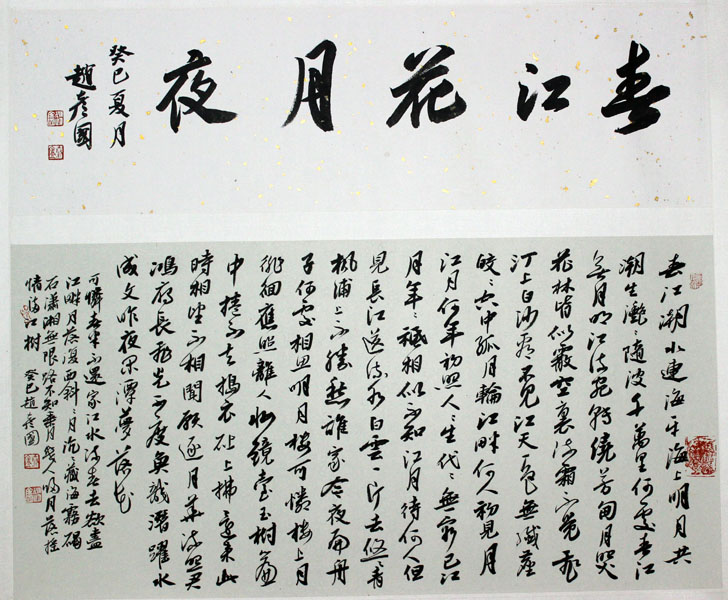 春江花月夜
癸巳夏月
趙彥國
春江潮水連海平海上明月共
潮生灩々隨波千萬里何處春江
無月明江流宛轉繞芳甸月照
花林皆似霰空裏流霜不覺飛
汀上白沙看不見江天一色無纖塵
皎々空中孤月輪江畔何人初見月
江月何年初照人々生代々無窮已江
月年々祗相似不知江月待何人但
見長江送流水白雲一片去悠々青
楓浦上不勝愁誰家今夜扁舟
子何處相思明月樓可憐樓上月
徘徊應照離人妝鏡臺玉樹簾
中捲不去搗衣砧上拂還來此
時相望不相聞願逐月華流照君
鴻雁長飛光不度魚龍潛躍水
成文昨夜閑潭夢落花
可憐春半不還家江水流春去欲盡
江畔月落復西斜々月沉々藏海霧碣
石瀟湘無限路不知乘月幾人歸月落搖
情滿江樹 癸巳趙彥國